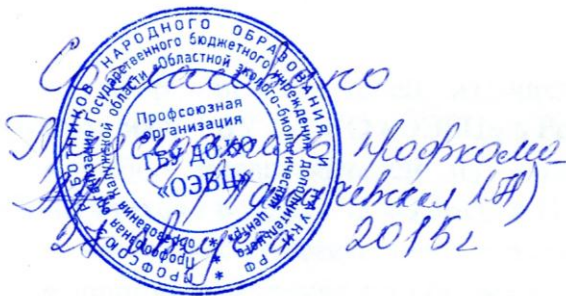 Согласовано
Председатель профкома
2015г
ПРОФСОЮЗ РАБОТНИКОВ НАРОДНОГО ОБРАЗОВАНИЯ И НАУКИ РФ
Профсоюзная организация Государственного бюджетного учреждения дополнительного
образования Калужской области «Областной эколого-биологический центр»
Профсоюзная
организация
ГБУ ДО КО
«ОЭБЦ»